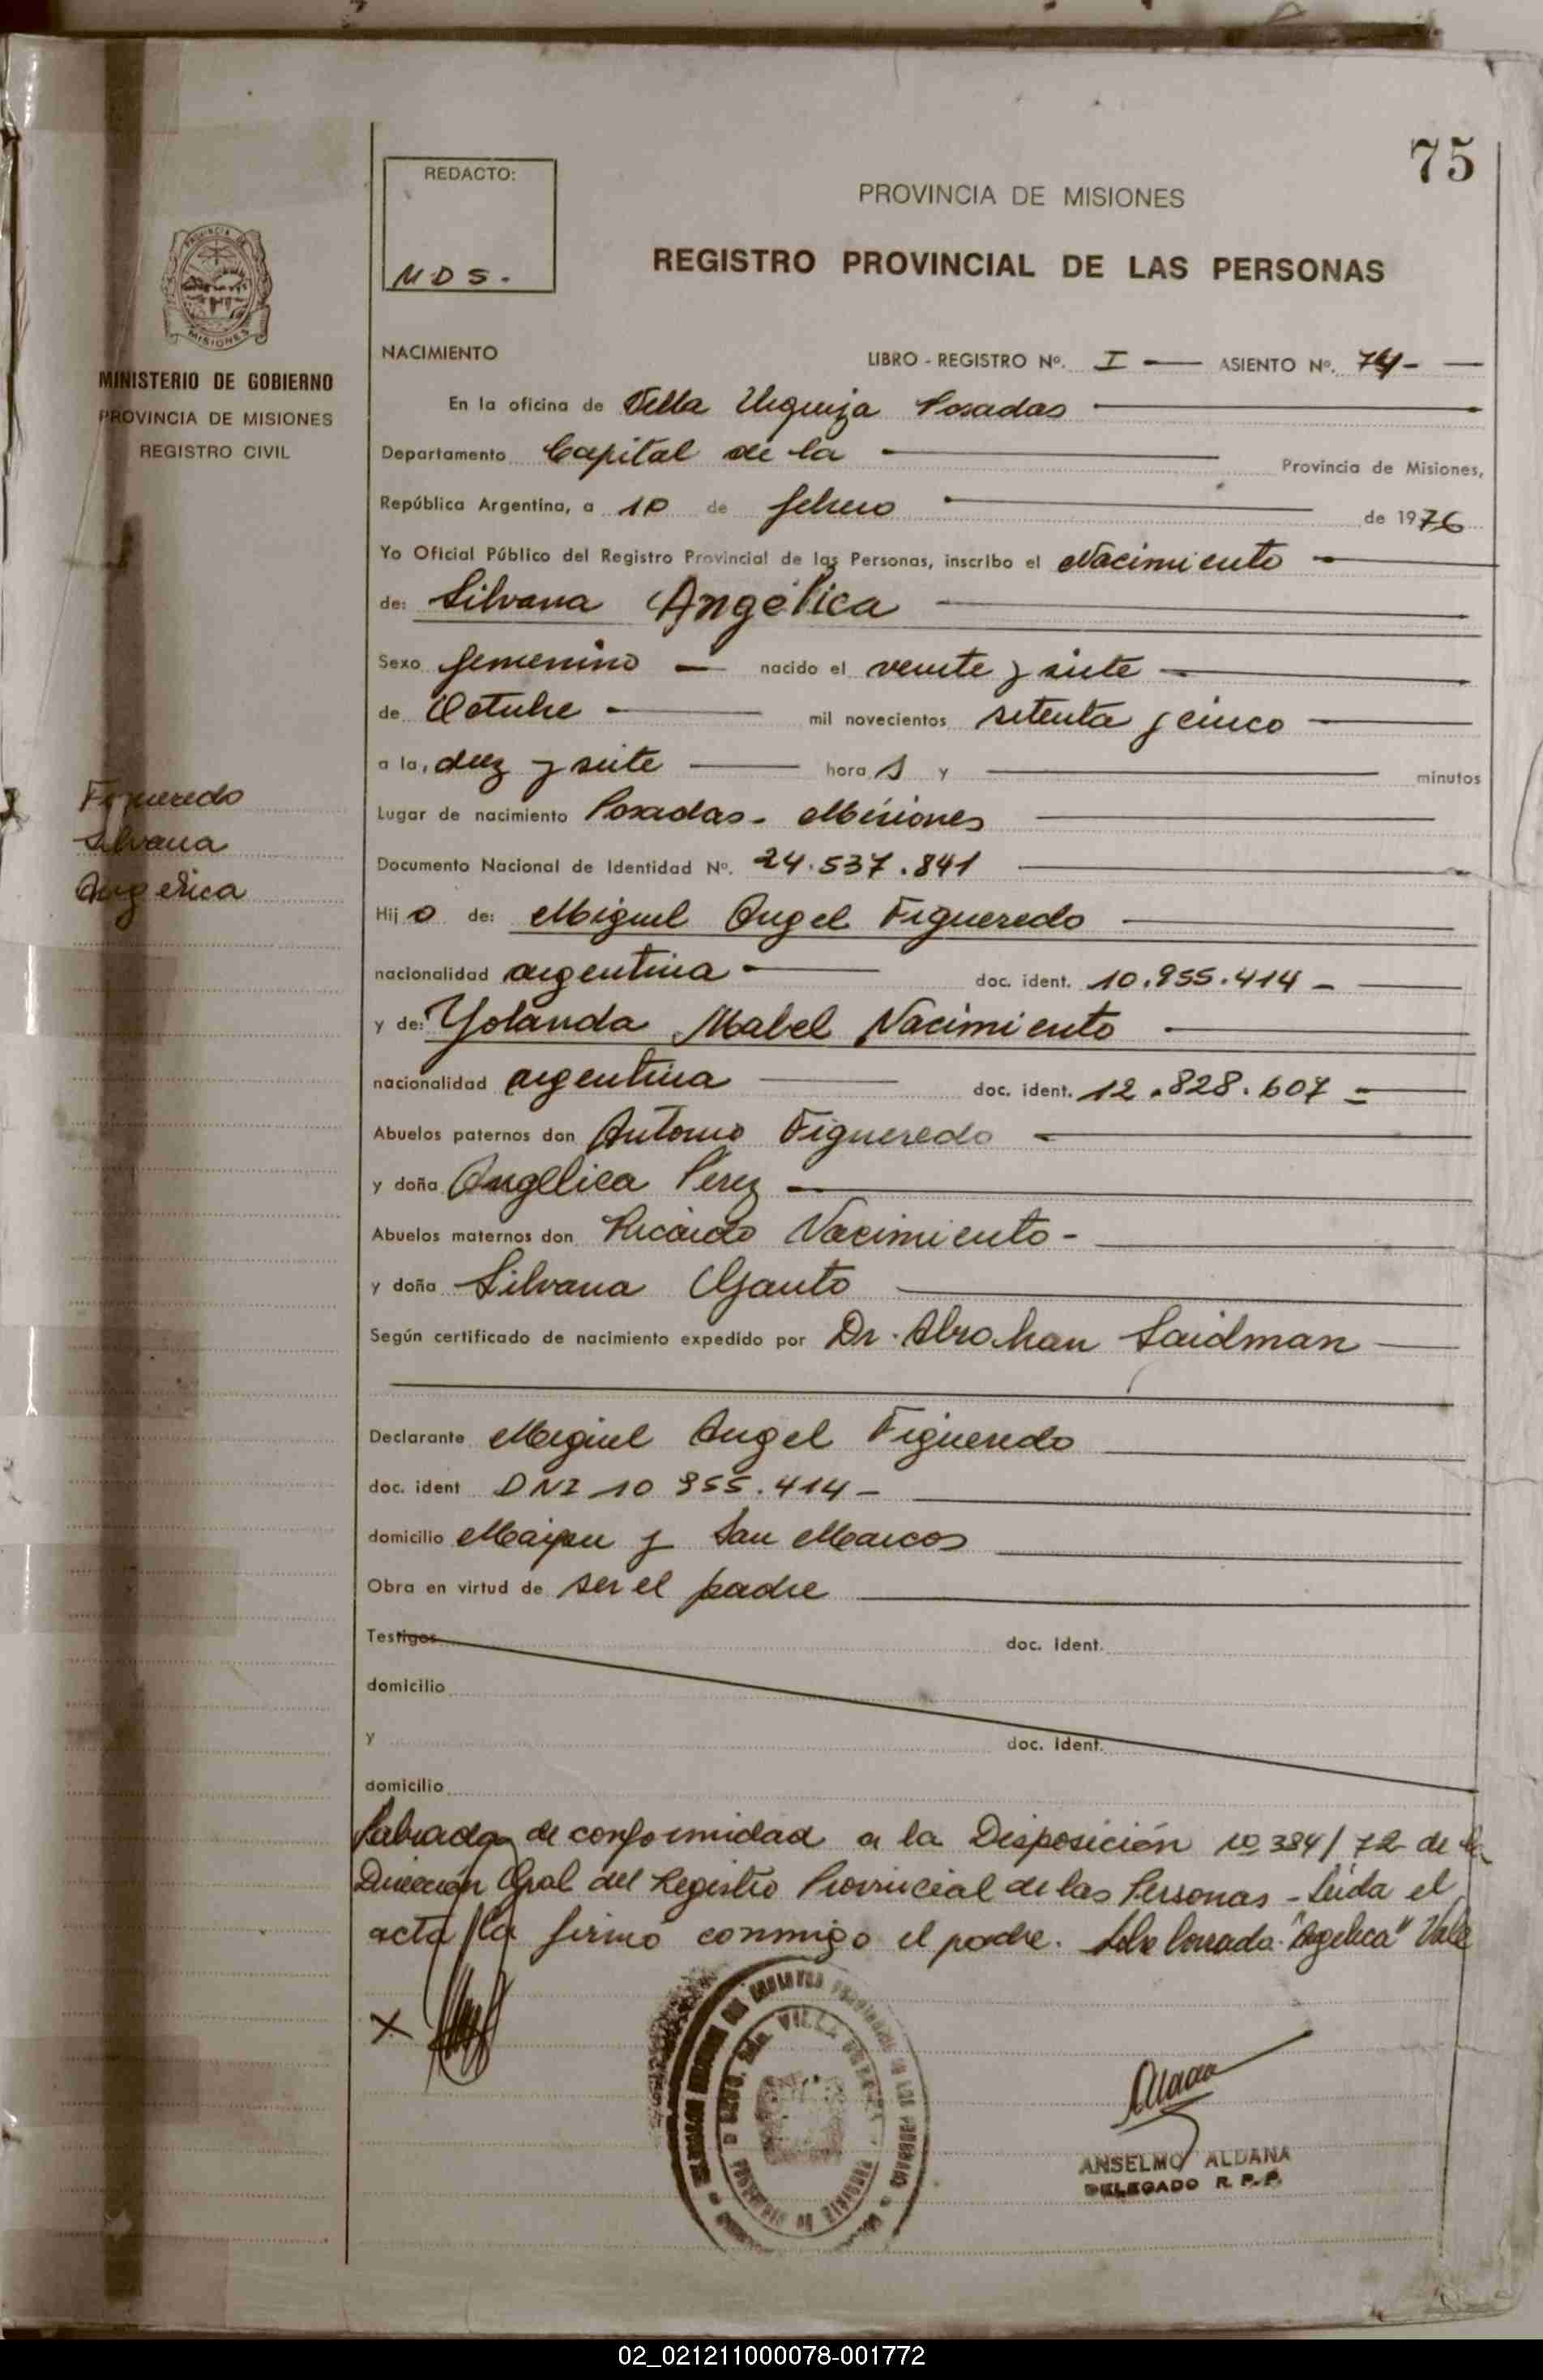 75
REDACTO:
MDS.
PROVINCIA DE MISIONES
REGISTRO PROVINCIAL DE LAS PERSONAS
PROVINCIA DE
MISIONES
MINISTERIO DE GOBIERNO
PROVINCIA DE MISIONES
REGISTRO CIVIL
Figueredo
Silvana
Angelica
NACIMIENTO LIBRO - REGISTRO Nº. I — ASIENTO Nº. 74 -
En la oficina de Villa Urquiza Posadas
Departamento Capital de la Provincia de Misiones,
República Argentina, a 10 de febrero de 1976
Yo Oficial Público del Registro Provincial de las Personas, inscribo el Nacimiento
de: Silvana Angélica
Sexo femenino — nacido el veinte y siete
de Octubre mil novecientos setenta y cinco
a la, diez y siete hora s y minutos
Lugar de nacimiento Posadas - Misiones
Documento Nacional de Identidad Nº. 24.537.841
Hij o de: Miguel Angel Figueredo
nacionalidad argentina doc. ident. 10.955.414 -
y de: Yolanda Mabel Nacimiento
nacionalidad argentina doc. ident. 12.828.607 =
Abuelos paternos don Antonio Figueredo
y doña Angélica Perez
Abuelos maternos don Ricardo Nacimiento -
y doña Silvana Gauto
Según certificado de nacimiento expedido por Dr. Abrahan Saidman
Declarante Miguel Angel Figueredo
doc. ident DNI 10 955.414 -
domicilio Maipu y San Marcos
Obra en virtud de ser el padre
Testigos doc. Ident.
domicilio
y doc. Ident.
domicilio
Labrada de conformidad a la Disposición nº 384/72 de la
Dirección Gral del Registro Provincial de las Personas - Leida el
acta la firmó conmigo el padre. Sobre borrado: "Angelica" Vale
X
VILLA
ANSELMO ALDANA
DELEGADO R. P. P.
02_021211000078-001772